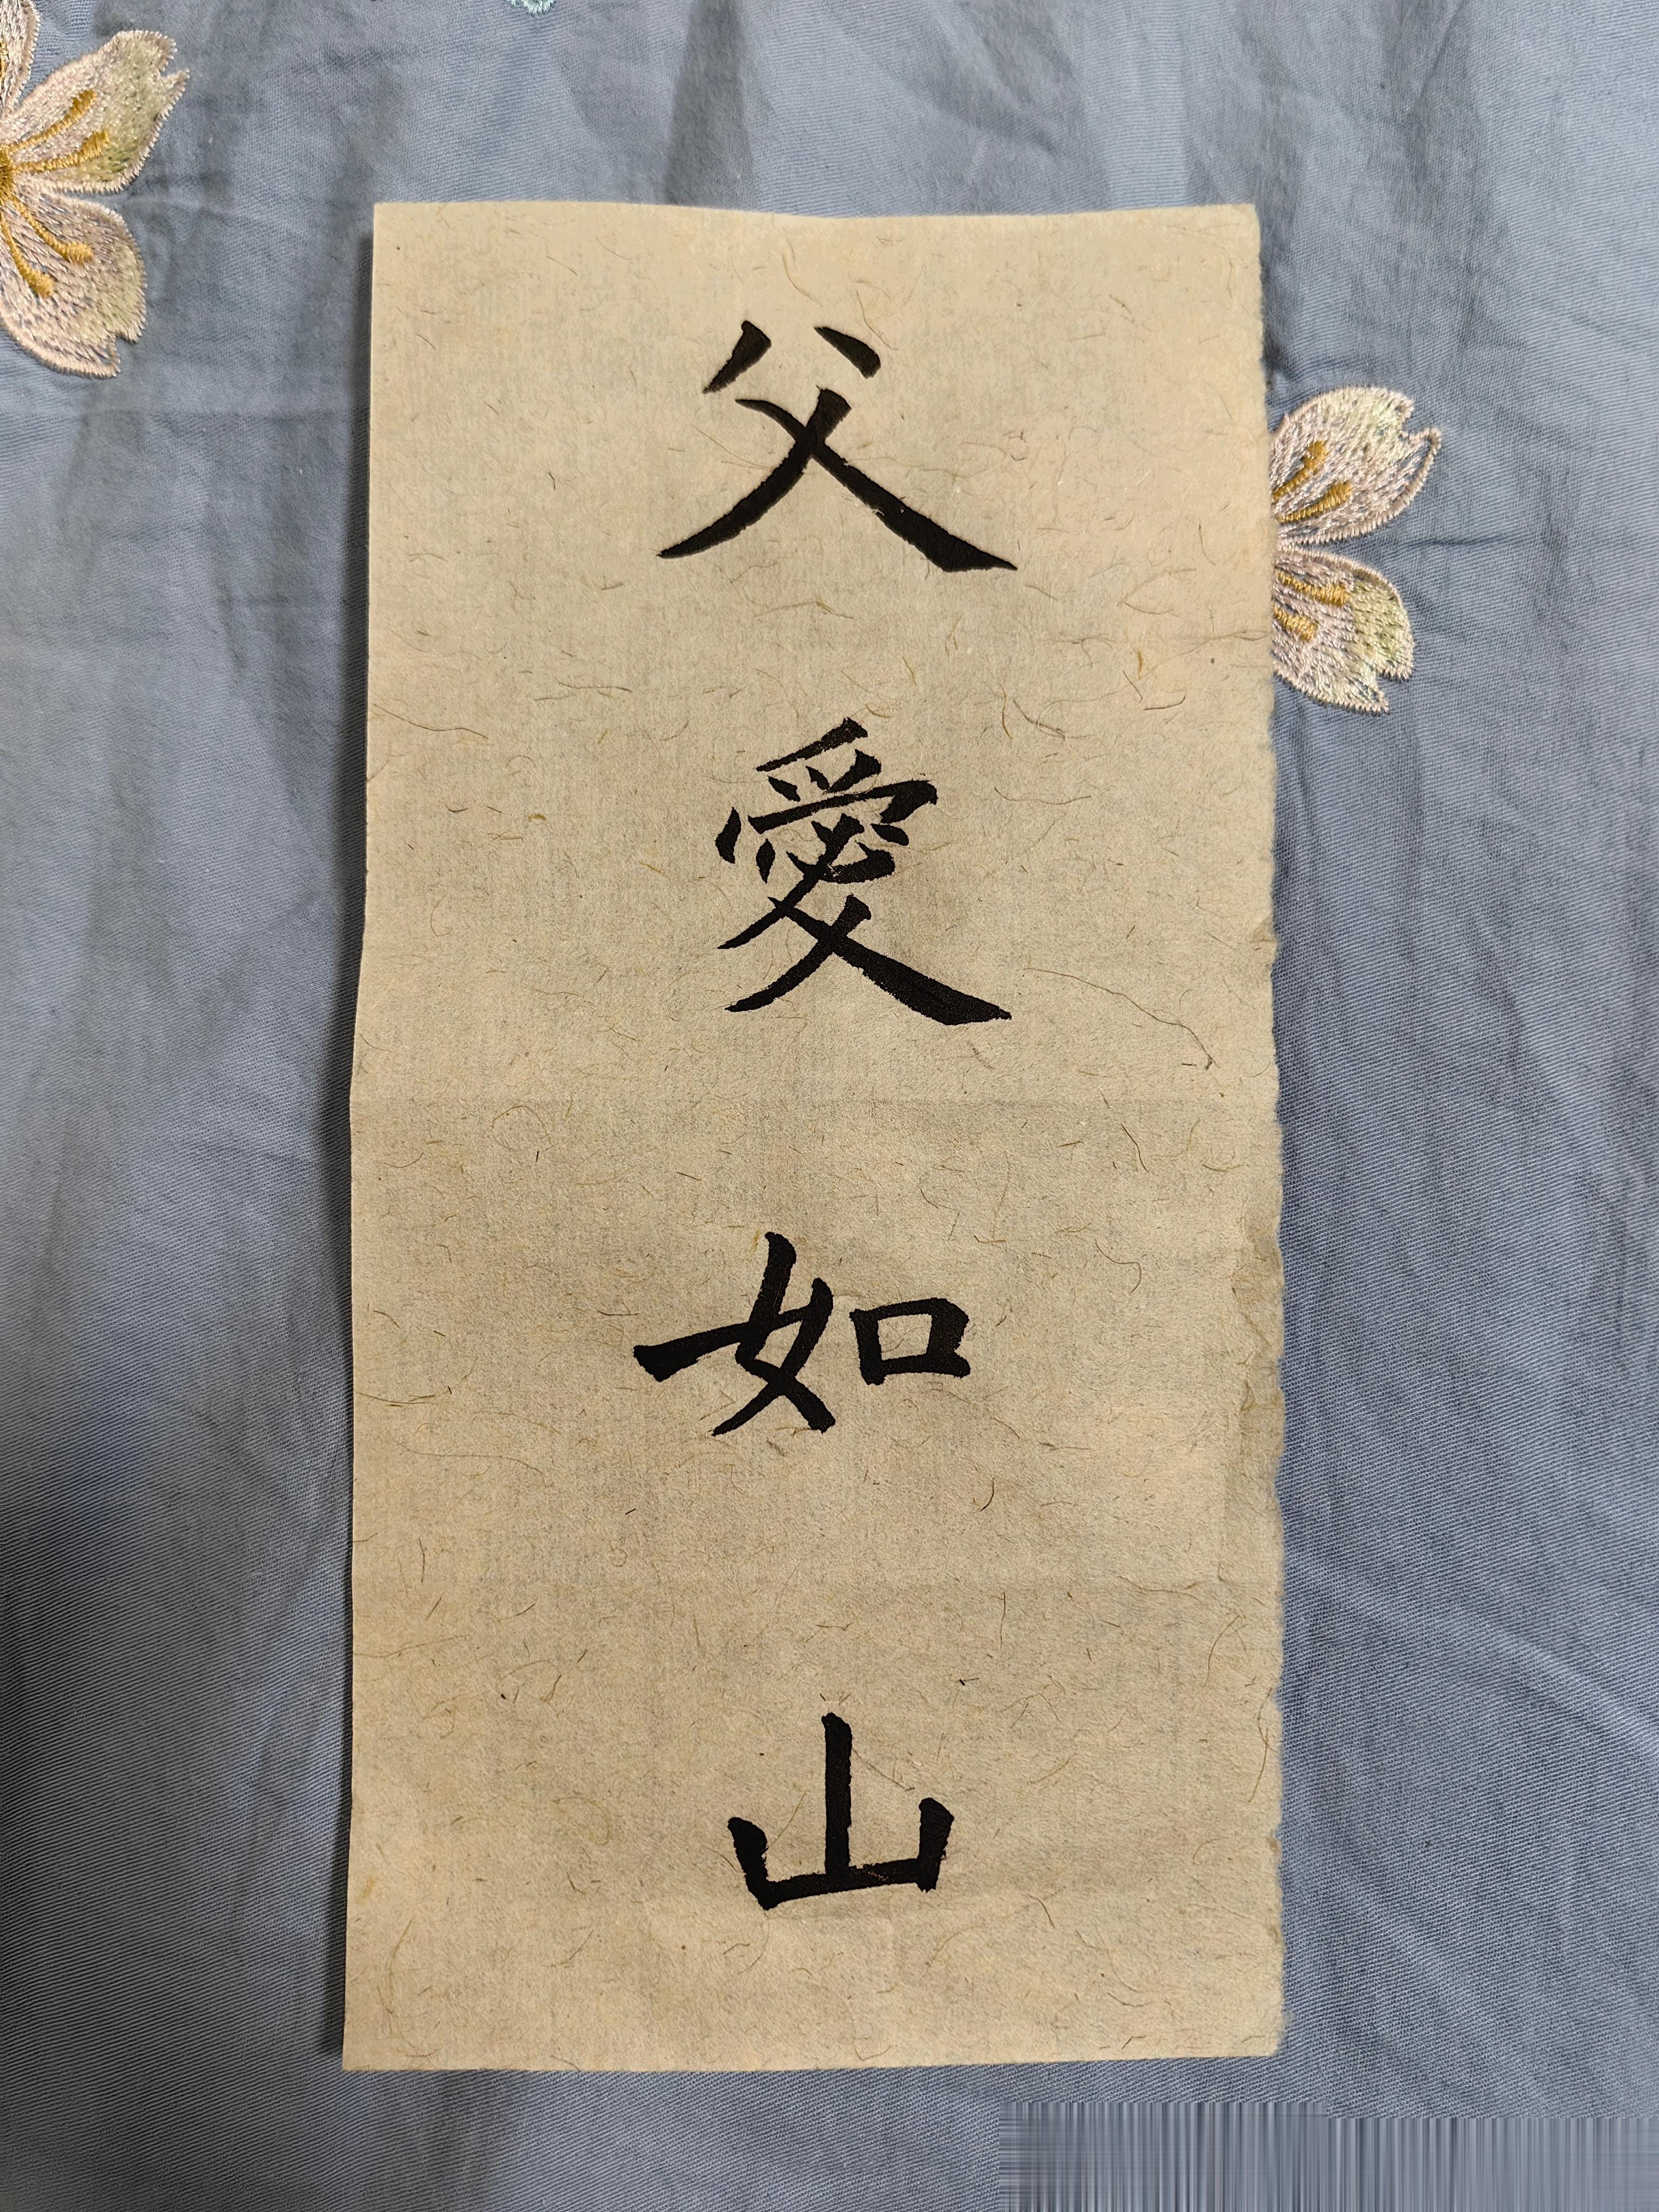 父愛如山